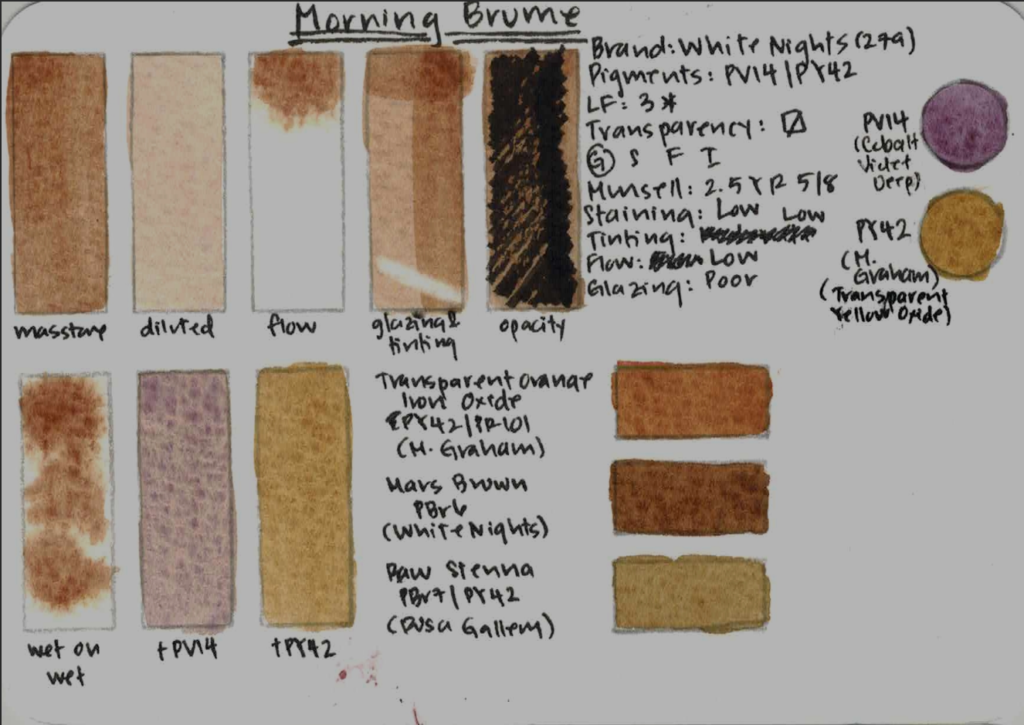 Morning Brume
Brand: White Nights (279)
Pigments: PV14/PY42
LF: 3*
Transparency:
G S F I
Munsell: 2.5YR 5/8
Staining: Low
Tinting: Low
Flow: Low
Glazing: Poor
PV14
(Cobalt
Violet
Deep)
PY42
(M.
Graham)
(Transparent
Yellow Oxide)
masstone
diluted
flow
glazing &
tinting
opacity
Transparent Orange
Iron Oxide
PY42/PR101
(M. Graham)
Mars Brown
PBr6
(White Nights)
Raw Sienna
PBr7/PY42
(Rosa Gallery)
wet on
wet
+PV14
+PY42